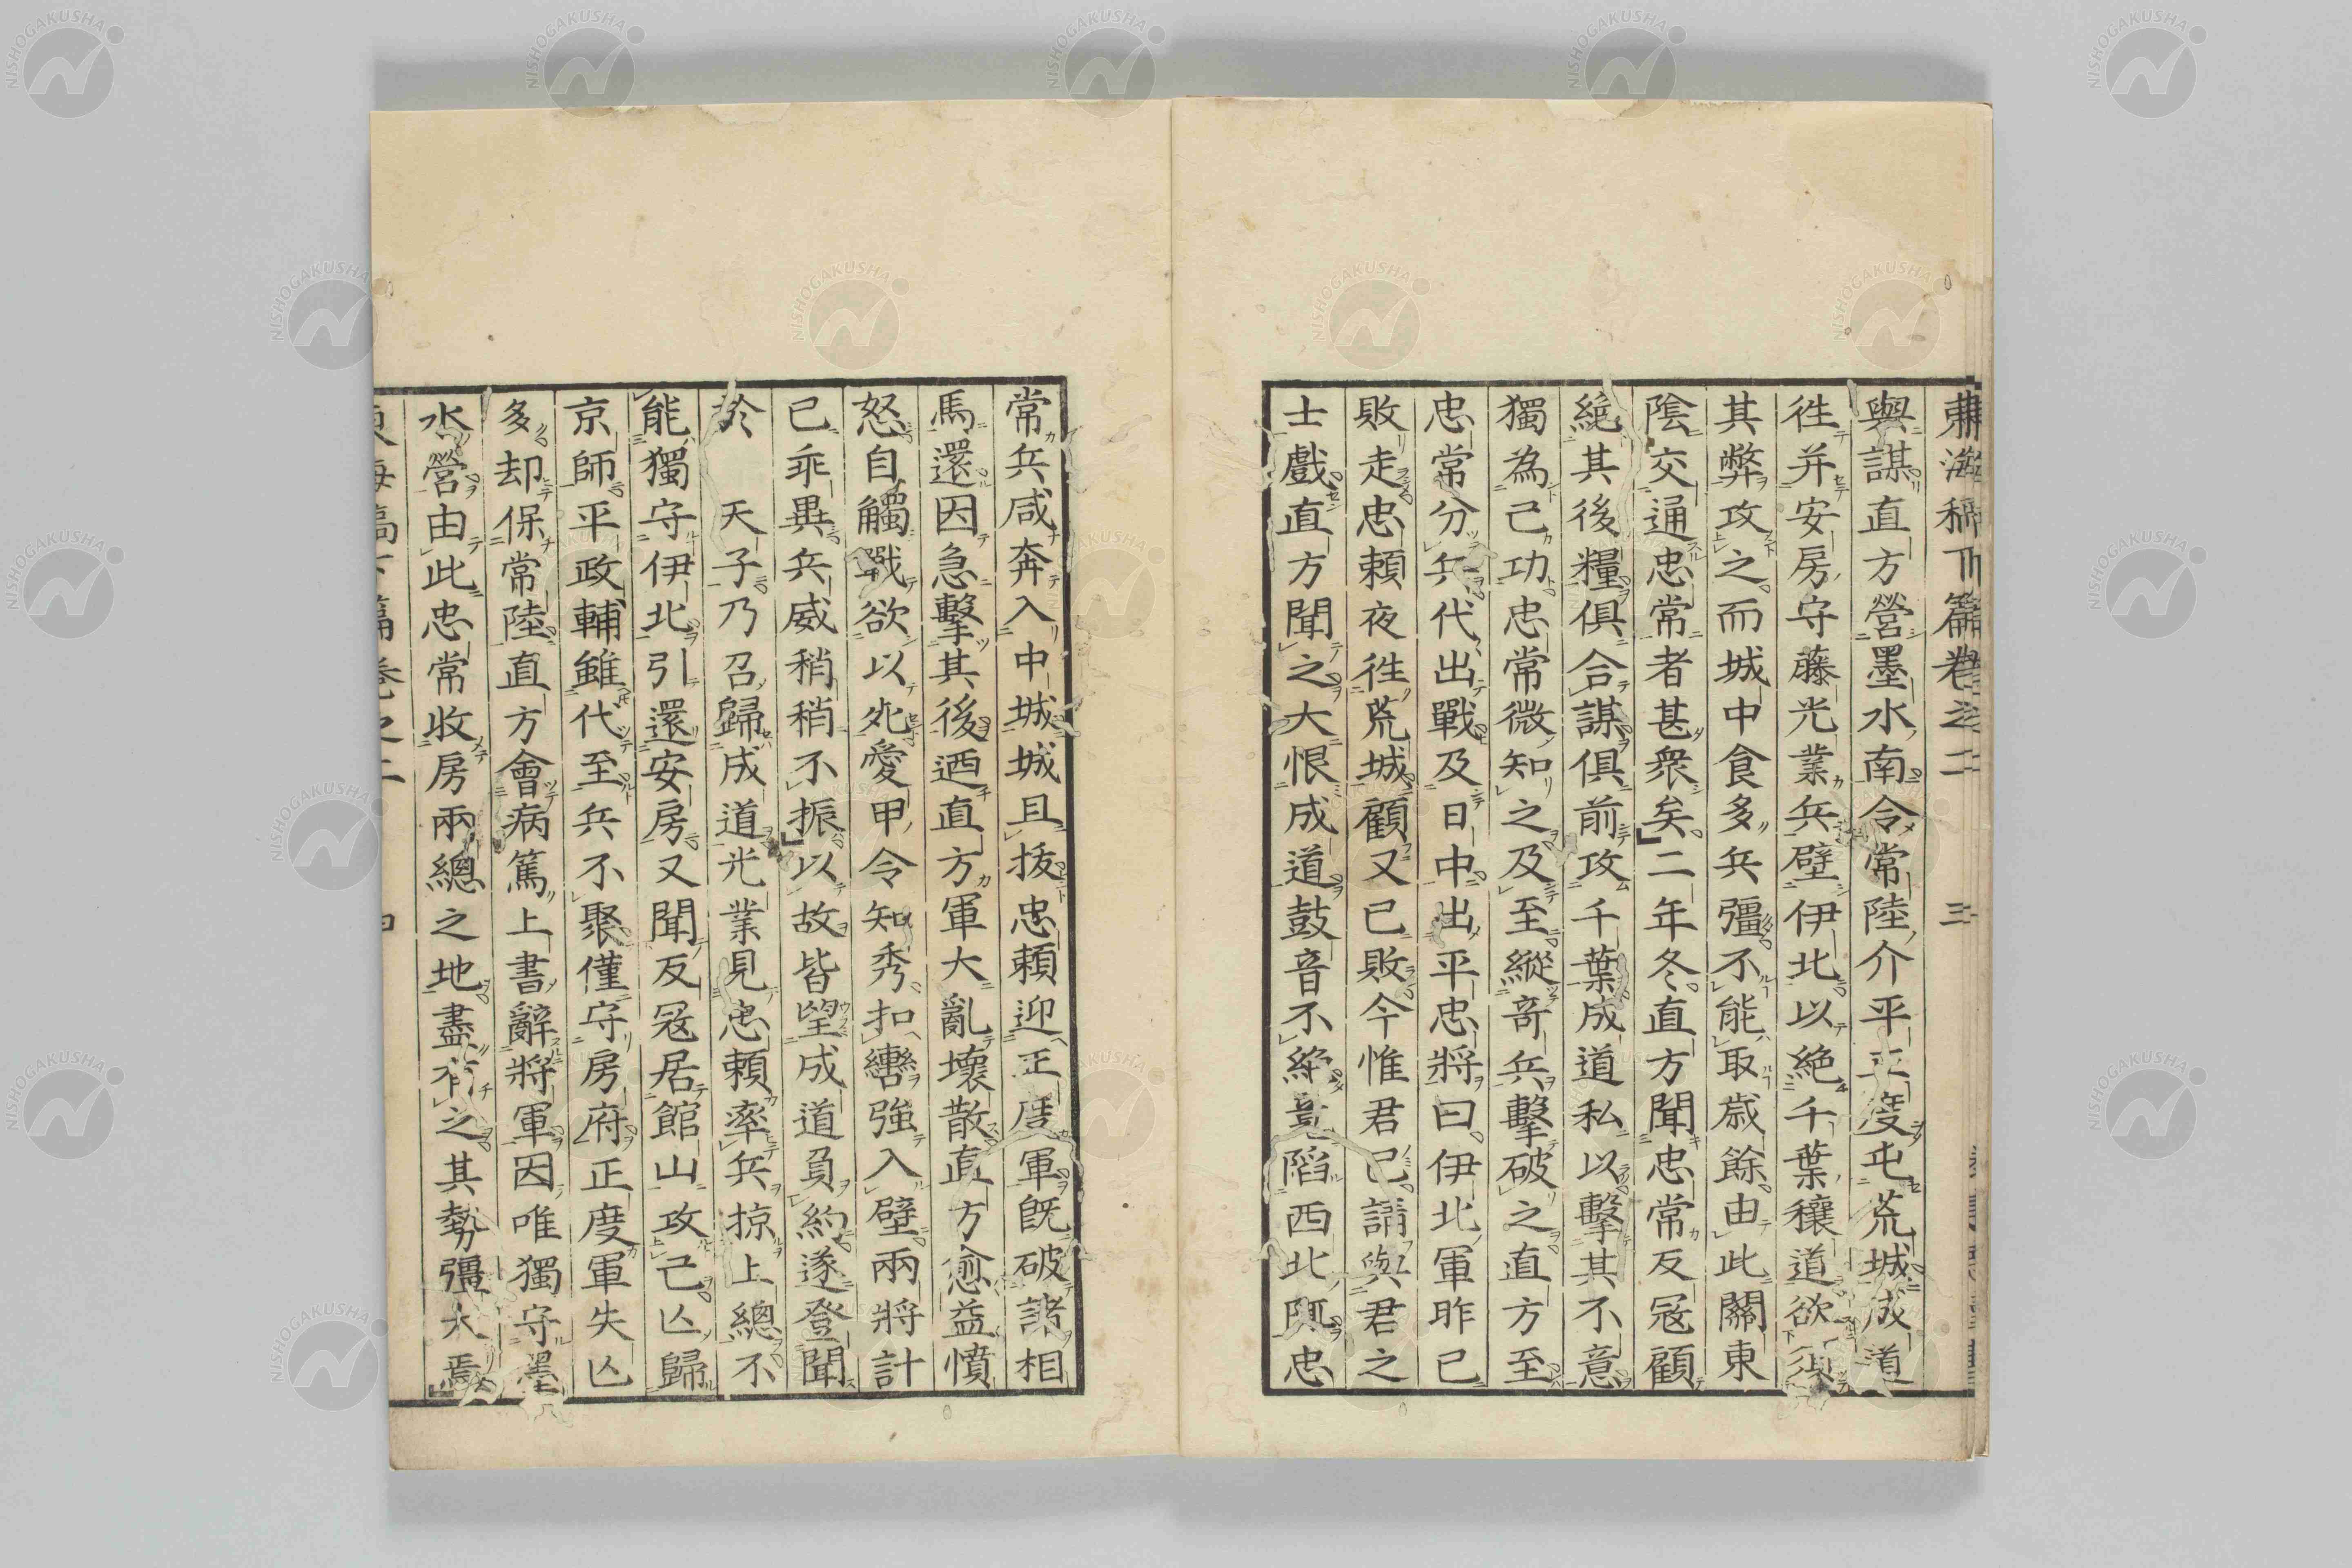 東海稱下篇卷之二 三
與謀直方營墨水南令常陸介平正度屯荒城成道
徃并安房守藤光業兵壁伊北以絶千葉穰道欲須
其弊攻之而城中食多兵彊不能取歳餘由此關東
陰交通忠常者甚衆矣二年冬直方聞忠常反冦顧
絶其後糧俱合謀俱前攻千葉成道私以擊其不意
獨為己功忠常微知之及至縱竒兵擊破之直方至
忠常分兵代出戰及日中出平忠將曰伊北軍昨已
敗走忠頼夜徃荒城顧又已敗今惟君己請與君之
士戲直方聞之大恨成道鼓音不絶竟陷西北陬忠
常兵咸奔入中城城且拔忠頼迎正度軍既破諸相
馬還因急擊其後迺直方軍大亂壞散直方愈益憤
怒自觸戰欲以死愛甲令知秀扣轡強入壁兩將計
已乖異兵威稍稍不振以故皆望成道負約遂登聞
於 天子乃召歸成道光業見忠頼率兵掠上總不
能獨守伊北引還安房又聞反冦居館山攻己亾歸
京師平政輔雖代至兵不聚僅守房府正度軍失亾
多却保常陸直方會病篤上書辭將軍因唯獨守墨
水營由此忠常收房兩總之地盡有之其勢彊大焉
東海稱下篇卷之二 四
NISHOGAKUSHA